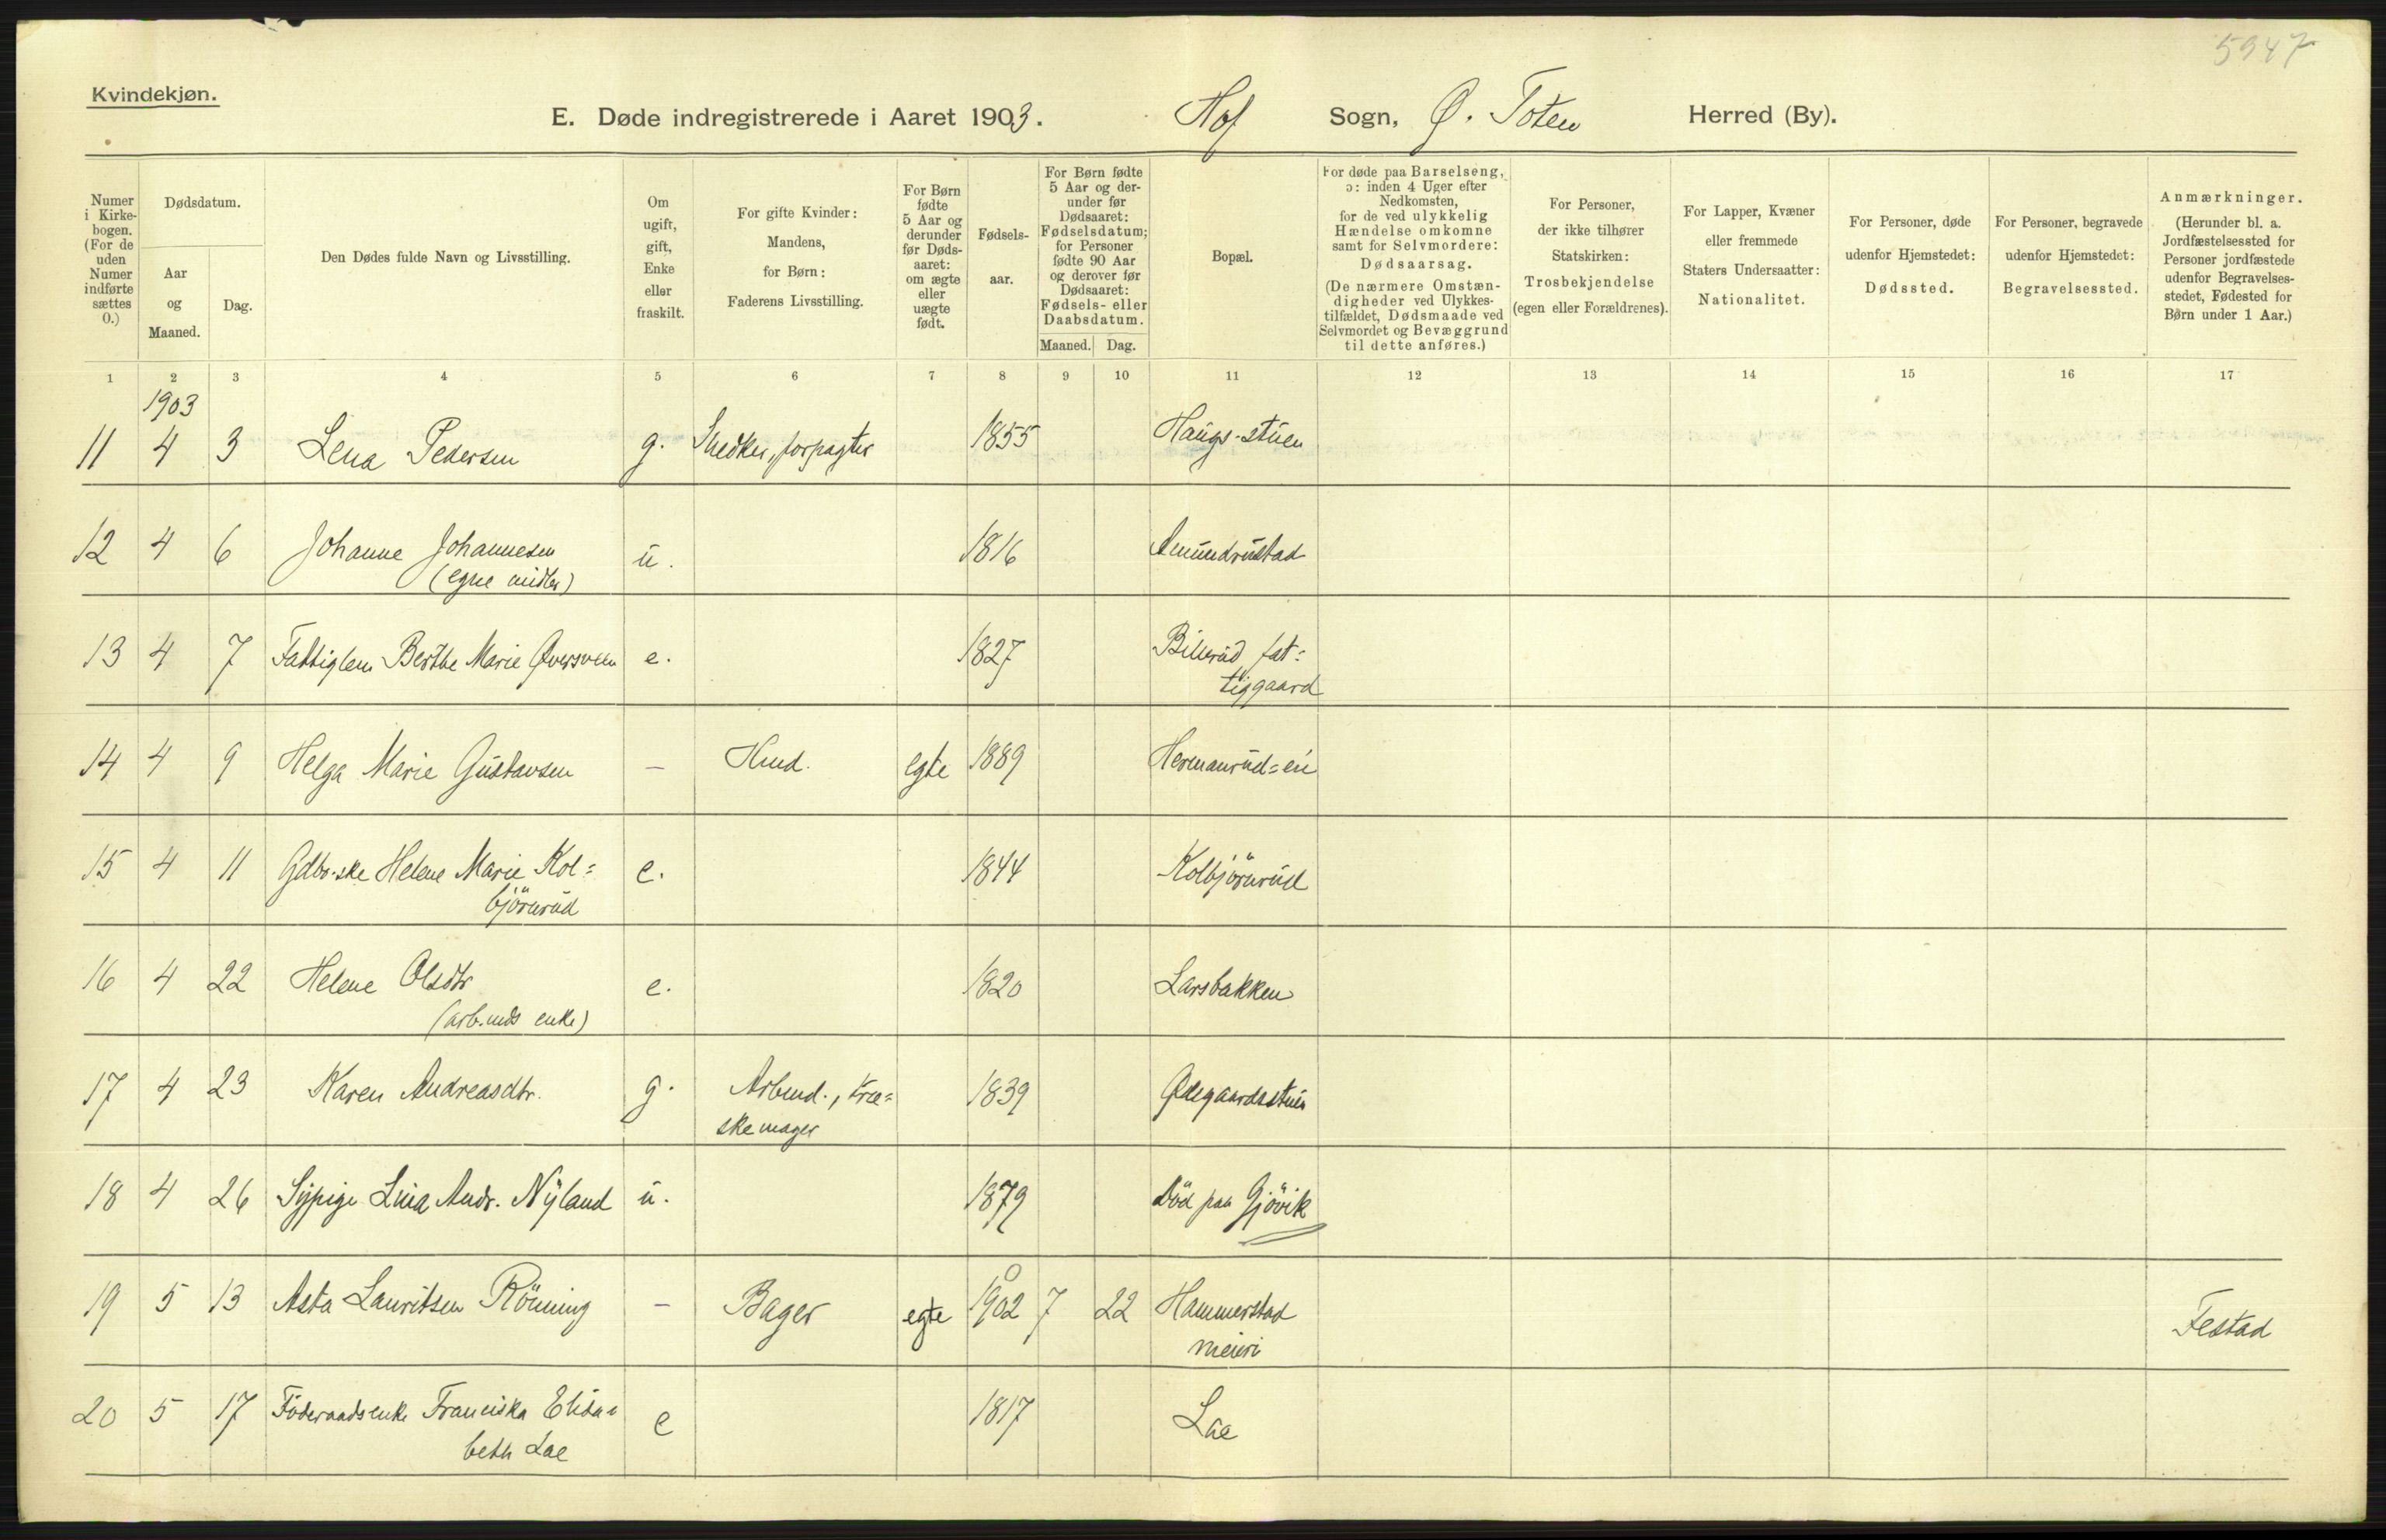 5947
Kvindekjøn.
E. Døde indregistrerede i Aaret 1903. Hof Sogn, Ø. Toten Herred (By).
Numer i Kirkebogen. (For de uden Numer indførte sættes 0.)
Dødsdatum.
Aar og Maaned.
Dag.
Den Dødes fulde Navn og Livsstilling.
Om ugift, gift, Enke eller fraskilt.
For gifte Kvinder: Mandens, for Børn: Faderens Livsstilling.
For Børn fødte 5 Aar og derunder før Dødsaaret: om ægte eller uægte født.
Fødselsaar.
For Børn fødte 5 Aar og derunder før Dødsaaret: Fødselsdatum; for Personer fødte 90 Aar og derover før Dødsaaret: Fødsels- eller Daabsdatum.
Maaned. Dag.
Bopæl.
For døde paa Barselseng, ɔ: inden 4 Uger efter Nedkomsten, for de ved ulykkelig Hændelse omkomne samt for Selvmordere: Dødsaarsag. (De nærmere Omstændigheder ved Ulykkestilfældet, Dødsmaade ved Selvmordet og Bevæggrund til dette anføres.)
For Personer, der ikke tilhører Statskirken: Trosbekjendelse (egen eller Forældrenes).
For Lapper, Kvæner eller fremmede Staters Undersaatter: Nationalitet.
For Personer, døde udenfor Hjemstedet: Dødssted.
For Personer, begravede udenfor Hjemstedet: Begravelsessted.
Anmærkninger. (Herunder bl. a. Jordfæstelsessted for Personer jordfæstede udenfor Begravelsesstedet, Fødested for Børn under 1 Aar.)
1 2 3 4 5 6 7 8 9 10 11 12 13 14 15 16 17
1903
11 4 3 Lena Pedersen g. Snedker, forpagter 1855 Haugs-stuen
12 4 6 Johanne Johannesen u. 1816 Amundrustad
(egne midler)
13 4 7 Fattiglem Berthe Marie Øversveen e. 1827 Billerud fat=
tiggaard
14 4 9 Helga Marie Gustavsen — Hmd. egte 1889 Hermanrud=ei
15 4 11 Gdbr.ske Helene Marie Kol= e. 1844 Kolbjörnrud
björnrud
16 4 22 Helene Olsdtr e. 1820 Larsbakken
(arb.mds enke)
17 4 23 Karen Andreasdtr. g. Arbmd., træ= 1839 Ødegaardsstuen
skemager
18 4 26 Sypige Lina Andr. Nyland u. 1879 Död paa Gjövik
19 5 13 Asta Lauritsen Rönning — Bager egte 1902 7 22 Hammerstad Festad
meieri
20 5 17 Föderaadsenke Franciska Elisa= e 1817 Lae
beth Lae